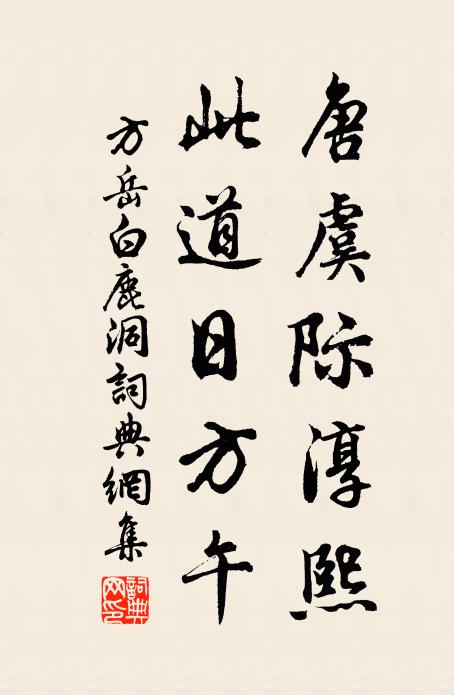 唐虞际淳熙
此道日方午
方岳白鹿洞詞典網集
詞典网印